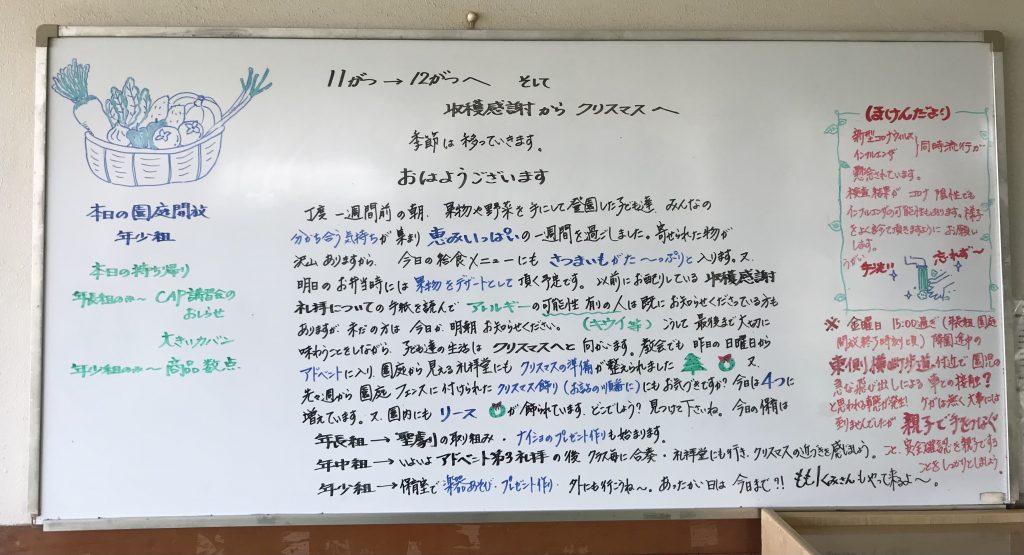 11がつ→12がつへ そして
収穫感謝から クリスマスへ
季節は移っていきます。
おはようございます
丁度一週間前の朝、果物や野菜を手にして登園した子ども達、みんなの
分かち合う気持ちが集まり恵みいっぱいの一週間を過ごしました。寄せられた物が
沢山ありますから、今日の給食メニューにもさつまいもがた〜っぷりと入ります。又、
明日のお弁当時には果物をデザートとして頂く予定です。以前にお配りしている収穫感謝
礼拝についての手紙を読んでアレルギーの可能性有りの人は既にお知らせくださっている方も
ありますが、まだの方は今日か、明朝お知らせください。(キウイ等)こうして最後まで大切に
味わうことをしながら、子ども達の生活はクリスマスへと向かいます。教会でも昨日の日曜日から
アドベントに入り、園庭から見える礼拝堂にもクリスマスの準備が整えられました 又、
先々週から園庭フェンスに付けられたクリスマス飾り(お話の順番に)にもお気づきですか?今日は4つに
増えています。又、園内にもリースが飾られています。どこでしょう?見つけて下さいね。今日の保育は
年長組→聖劇の取り組み・ナイショのプレゼント作りも始まります。
年中組→いよいよアドベント第3礼拝の後クラス毎に合奏・礼拝堂にも行き、クリスマスの近づきを感じましょう。
年少組→保育室で楽器あそび・プレゼント作り・外にも行こうね〜。あったかい日は今日まで?!ももくみさんもやって来るよ〜。
本日の園庭開放
年少組
本日の持ち帰り
年長組のみ〜CAP講習会の
おしらせ
大きいカバン
年少組のみ〜商品数点
ほけんだより
新型コロナウィルス
インフルエンザ
同時流行が
懸念されています。
検査結果がコロナ陰性でも
インフルエンザの可能性もあります。様子
をよく診て頂きますようにお願い
します。
うがい
手洗い
これず〜
※金曜日15:00過ぎ(年長組園庭
開放終了時刻の頃)降園途中の
東側横断歩道付近で園児の
急な飛び出しによる車との接触?
と思われる事態が発生!ケガは無く大事には
到りませんでしたが親子で手をつなぐ
こと、安全確認を親子でする
ことをしっかりとしましょう。